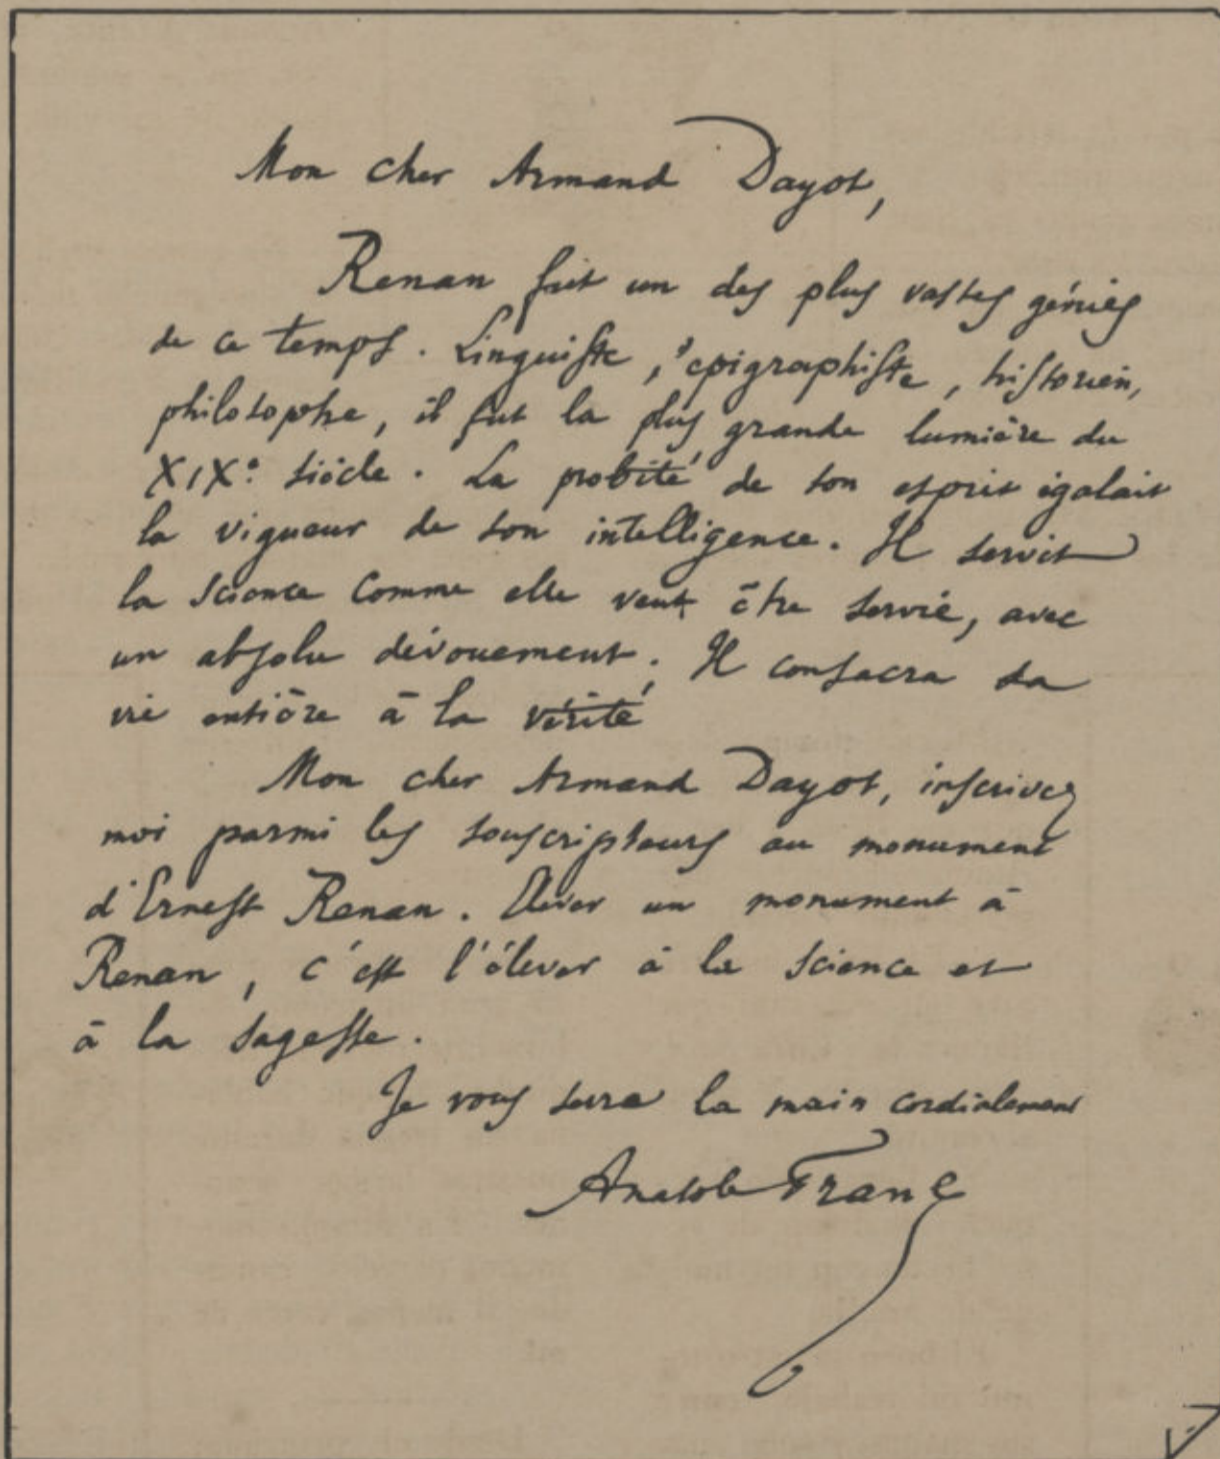 Mon cher Armand Dayot,
Renan fut un des plus vastes génies
de ce temps. Linguiste, épigraphiste, historien,
philosophe, il fut la plus grande lumière du
XIXe siècle. La probité de son esprit égalait
la vigueur de son intelligence. Il servit
la science comme elle veut être servie, avec
un absolu dévouement. Il consacra sa
vie entière à la vérité
Mon cher Armand Dayot, inscrivez
moi parmi les souscripteurs au monument
d'Ernest Renan. Elever un monument à
Renan, c'est l'élever à la science et
à la sagesse.
Je vous serre la main cordialement
Anatole France